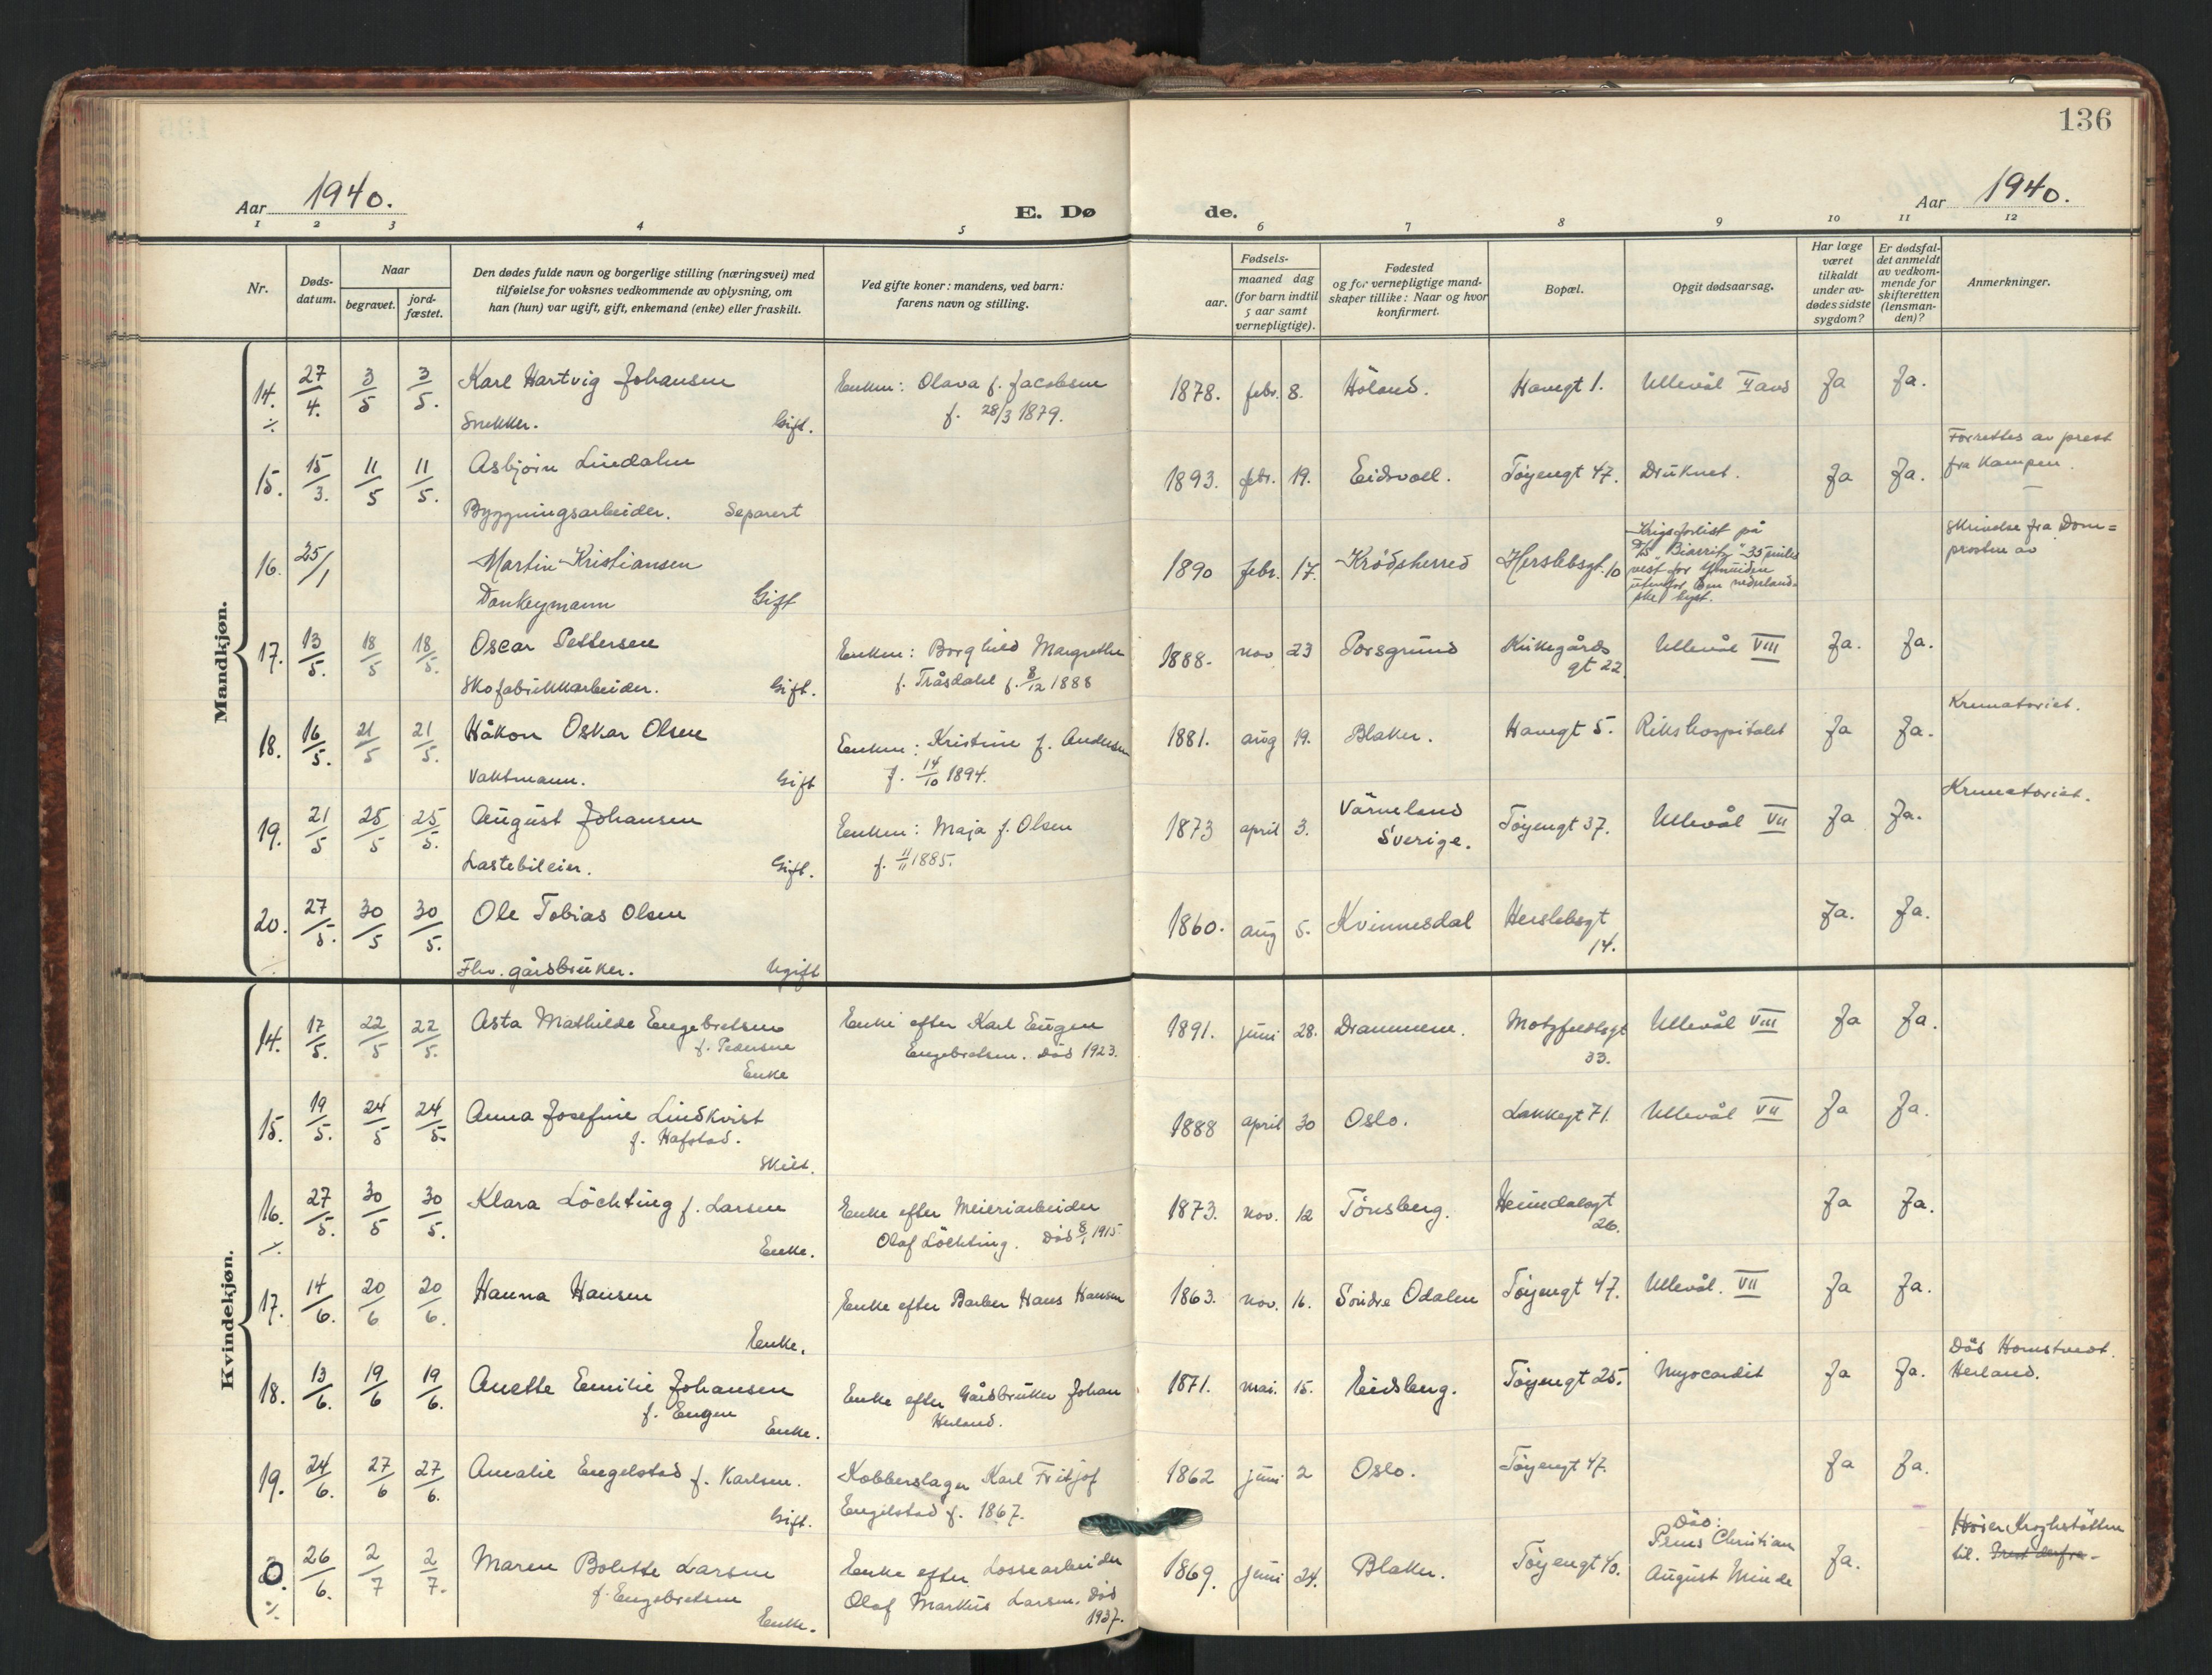 136
Aar 1940.
E. Dø
de.
Aar 1940.
1 2 3 4 5 6 7 8 9 10 11 12
Nr.
Døds-
datum.
Naar
begravet.
jord-
fæstet.
Den dødes fulde navn og borgerlige stilling (næringsvei) med
tilføielse for voksnes vedkommende av oplysning, om
han (hun) var ugift, gift, enkemand (enke) eller fraskilt.
Ved gifte koner: mandens, ved barn:
farens navn og stilling.
Fødsels-
aar.
maaned dag
(for barn indtil
5 aar samt
vernepligtige).
Fødested
og for vernepligtige mand-
skaper tillike: Naar og hvor
konfirmert.
Bopæl.
Opgit dødsaarsag.
Har læge
været
tilkaldt
under av-
dødes sidste
sygdom?
Er dødsfal-
det anmeldt
av vedkom-
mende for
skifteretten
(lensman-
den)?
Anmerkninger.
Mandkjøn.
14. 27/4. 3/5 3/5. Karl Hartvig Johansen Enken: Olava f. Jacobsen 1878. febr. 8. Höland. Havegt 1. Ullevål II avd Ja Ja.
Snekker. Gift. f. 28/3 1879.
15. 15/3. 11/5 11/5. Asbjörn Lindalen 1893. febr. 19. Eidsvoll. Töyengt 47. Druknet. Ja Ja. Forrettes av prest
fra Kampen.
Byggningsarbeider. Separert
16. 25/1 Martin Kristiansen 1890 febr. 17. Krödsherred Herslebsgt. 10 Krigsforlist på
D/S "Biarritz" 35 miles
vest for Ymuiden
utenfor den nederland-
ske kyst.
Skrivelse fra Dom=
prosten av
Donkeymann Gift
17. 13/5. 18/5 18/5. Oscar Pettersen Enken: Borghild Margrethe 1888. nov 23 Porsgrund Kirkegårds
gt 22. Ullevål VIII Ja. Ja.
Skofabrikkarbeider. Gift. f. Tråsdahl f. 8/12 1888
18. 16/5. 21/5 21/5. Håkon Oskar Olsen Enken: Kristine f. Andersen 1881. aug 19. Blaker. Havegt 5. Rikshospitalet Ja Ja. Krematoriet.
Vaktmann. Gift f. 14/10 1894.
19. 21/5 25/5 25/5. August Johansen Enken: Maja f. Olsen 1873 april 3. Värmland
Sverige. Töyengt 37. Ullevål VII Ja Ja. Krematoriet.
Lastebileier. Gift. f. 11/11 1885.
20. 27/5. 30/5 30/5. Ole Tobias Olsen 1860. aug 5. Kvinnesdal Herslebsgt
14. Ja. Ja.
Fhv. gårdbruker. Ugift
Kvindekjøn.
14. 17/5. 22/5 22/5. Asta Mathilde Engebretsen Enke efter Karl Eugen 1891. juni 28. Drammen. Motzfeldtsgt
33. Ullevål VIII Ja Ja.
f. Pedersen Engebretsen. Död 1923.
Enke
15. 19/5. 24/5 24/5. Anna Josefine Lindkvist 1888 april 30 Oslo. Lakkegt 71. Ullevål VII Ja Ja.
f. Hafstad.
Skilt.
16. 27/5. 30/5 30/5. Klara Löchting f. Larsen Enke efter Meieriarbeider 1873. nov. 12 Tönsberg. Heimdalsgt
26. Ja Ja.
Enke. Olaf Löchting. Död 8/1 1915.
17. 14/6. 20/6 20/6. Hanna Hansen Enke efter Barber Hans Hansen 1863. nov. 16. Söndre Odalen Töyengt 47. Ullevål. VII Ja Ja.
Enke.
18. 13/6. 19/6 19/6. Anette Emilie Johansen Enke efter Gårdbruker Johan 1871. mai. 15. Eidsberg. Töyengt 25. Myocardit Ja Ja. Död Homstvedt.
Herland.
f. Engen Herland.
Enke.
19. 24/6. 27/6 27/6. Amalie Engelstad f. Karlsen. Kobberslager Karl Fritjof 1862 juni 2 Oslo. Töyengt 47. Ja Ja.
Gift. Engelstad f. 1867.
20. 26/6. 2/7 2/7. Maren Bolette Larsen Enke efter Lossearbeider 1869. juni 24. Blaker. Töyengt 40. Död:
Prins Christian
August Minde Ja.
til.
f. Engebretsen Olaf Markus Larsen. Död
1937.
Enke.